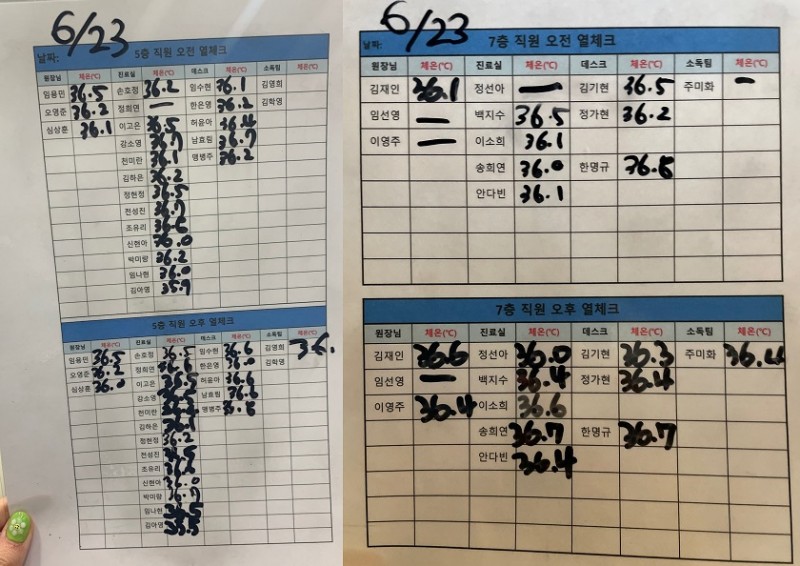 6/23
날짜: 5층 직원 오전 열체크
원장님 체온(℃) 진료실 체온(℃) 데스크 체온(℃) 소독팀 체온(℃)
임용민 36.5 손호정 36.2 임수현 36.1 김영희
오영준 36.2 정희연 — 한은영 36.2 김학영
심상훈 36.1 이고은 36.5 허윤아 36.4
강소영 36.7 남효림 36.7
천미란 36.1 맹병주 36.2
김하은 36.2
정현정 36.5
전성진 36.7
조유리 36.6
신현아 36.0
박미랑 36.2
임나현 36.0
김아영 35.9
5층 직원 오후 열체크
원장님 체온(℃) 진료실 체온(℃) 데스크 체온(℃) 소독팀 체온(℃)
임용민 36.5 손호정 36.5 임수현 36.6 김영희 36.
오영준 36.2 정희연 36.6 한은영 36.0 김학영
심상훈 36.0 이고은 36.5 허윤아 36.6
강소영 남효림 36.6
천미란 맹병주
김하은 36.1
정현정 36.2
전성진
조유리 36.6
신현아 36.0
박미랑 36.7
임나현 36.5
김아영 35.5
6/23
날짜: 7층 직원 오전 열체크
원장님 체온(℃) 진료실 체온(℃) 데스크 체온(℃) 소독팀 체온(℃)
김재인 36.1 정선아 — 김기현 36.5 주미화 —
임선영 — 백지수 36.5 정가현 36.2
이영주 — 이소희 36.1
송희연 36.0 한명규 36.8
안다빈 36.1
7층 직원 오후 열체크
원장님 체온(℃) 진료실 체온(℃) 데스크 체온(℃) 소독팀 체온(℃)
김재인 36.6 정선아 36.0 김기현 36.3 주미화 36.4
임선영 — 백지수 36.4 정가현 36.4
이영주 36.4 이소희 36.6
송희연 36.7 한명규 36.7
안다빈 36.4